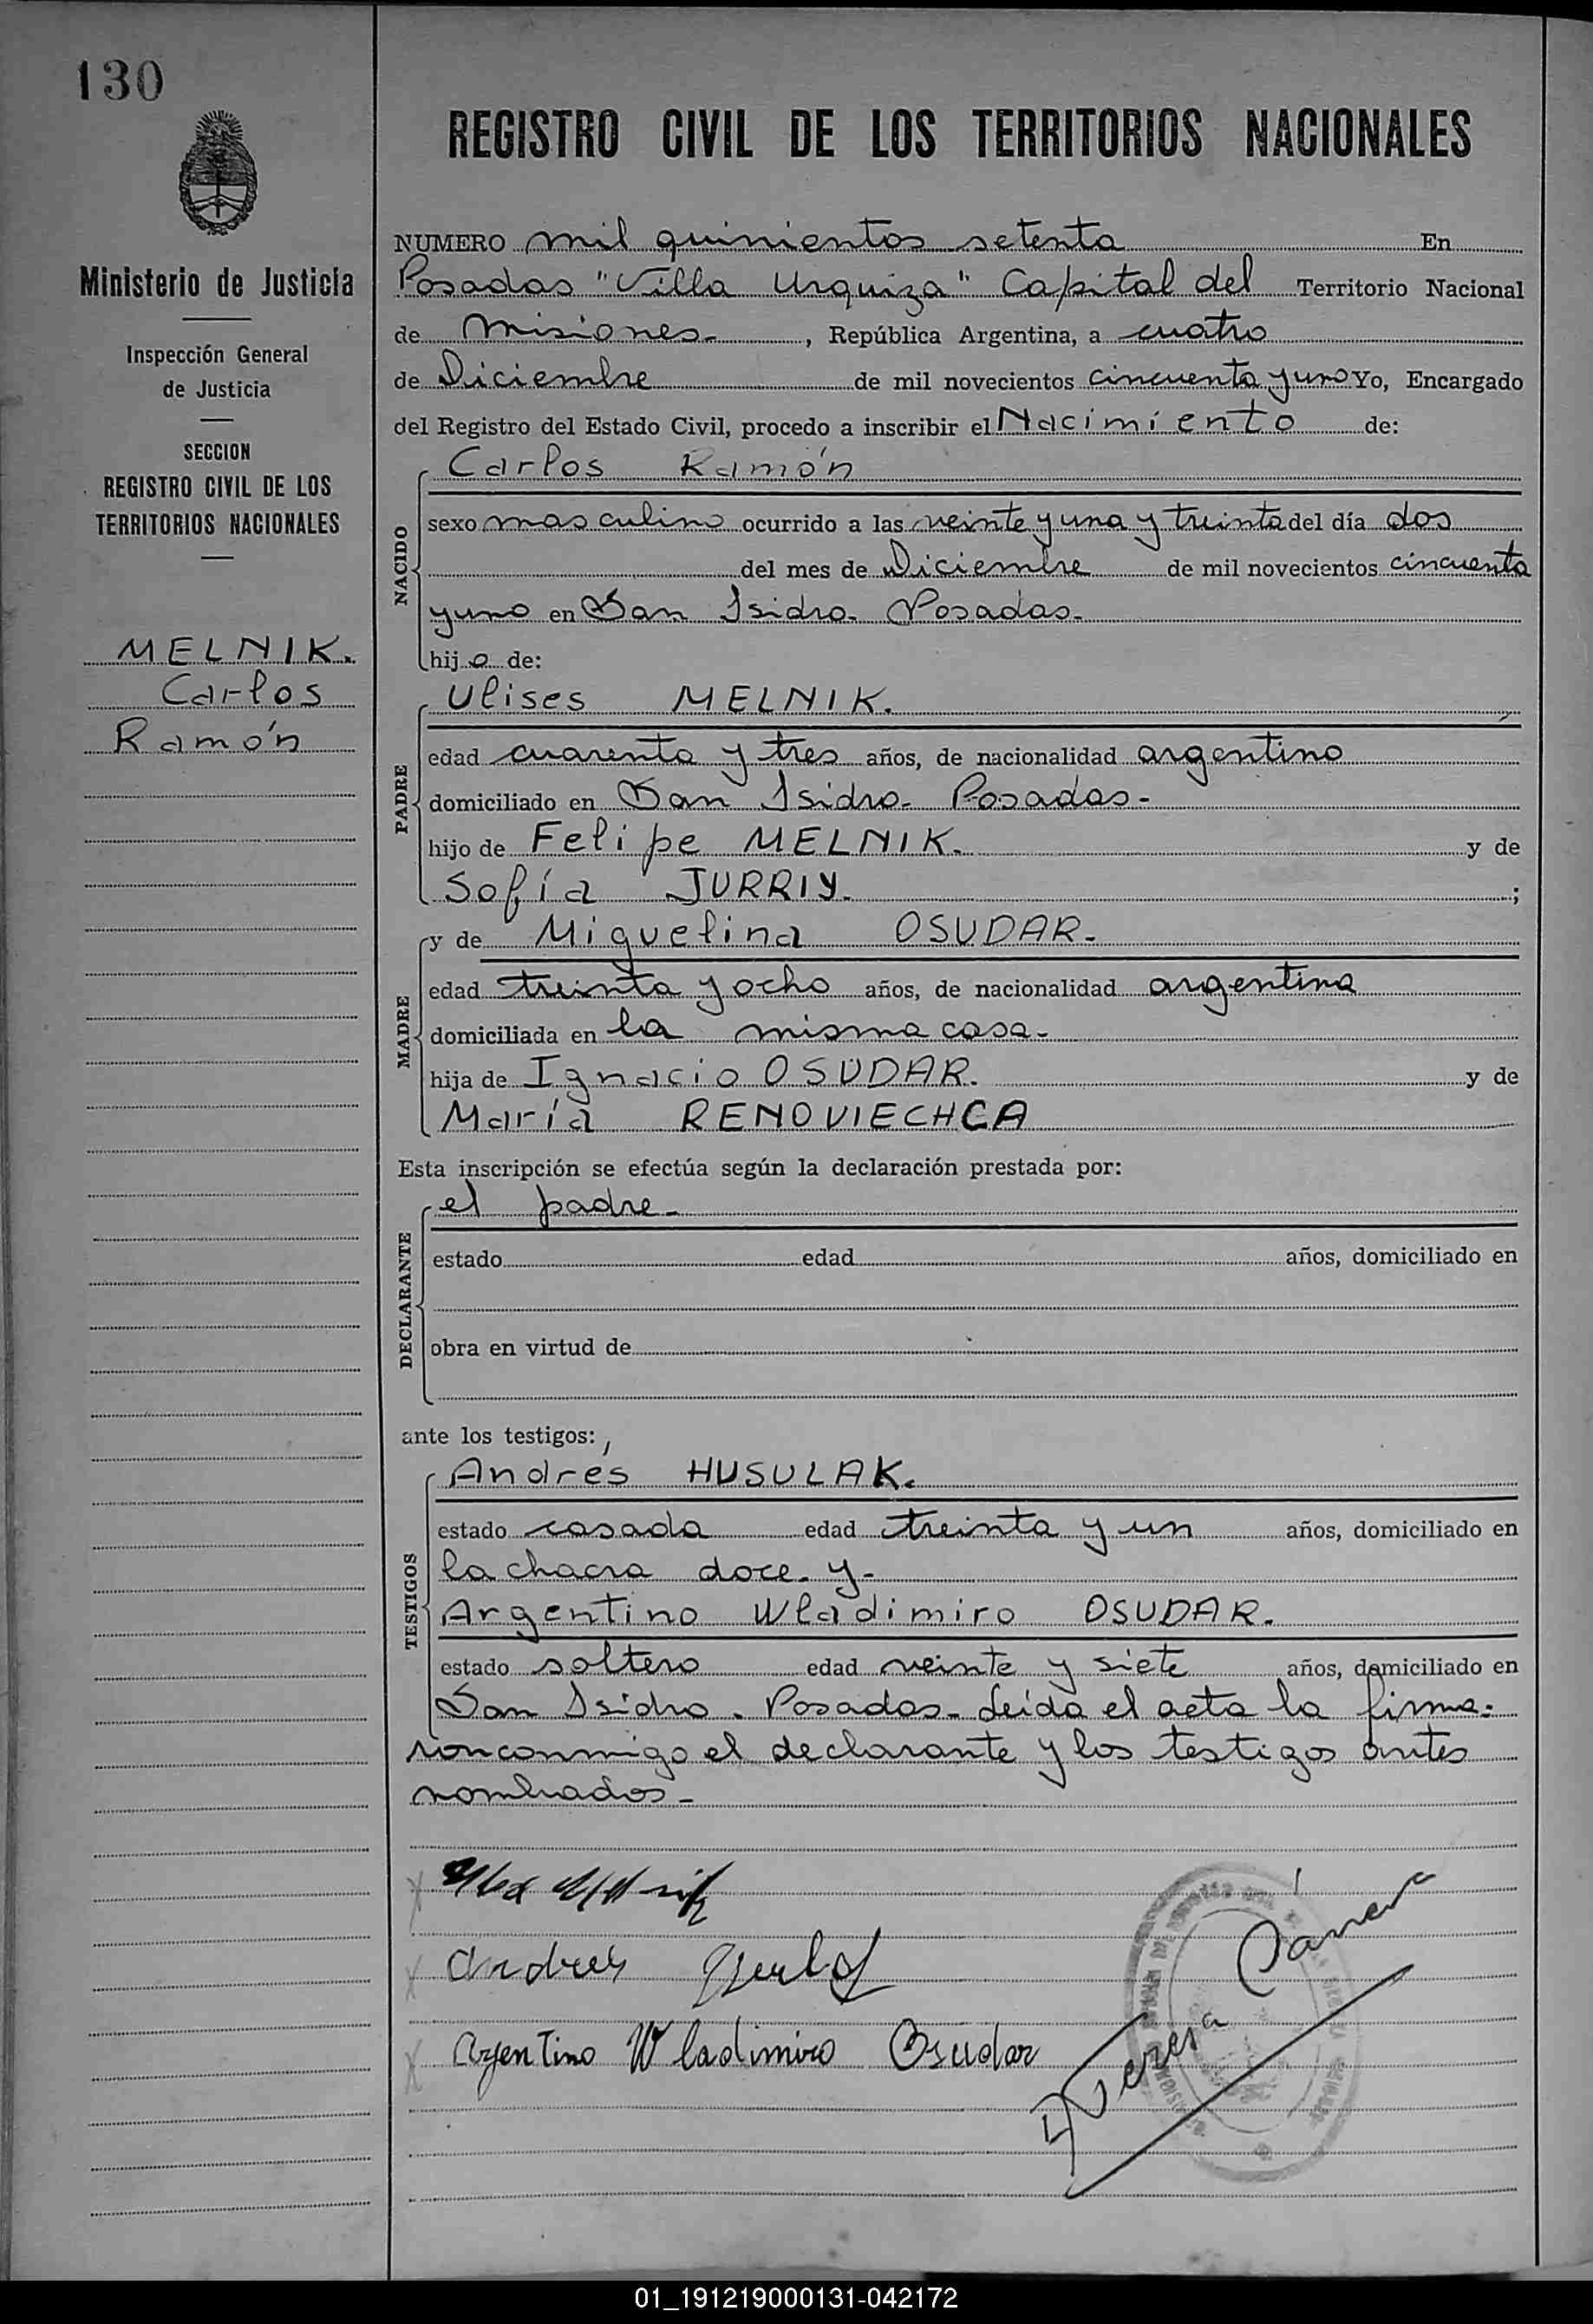 130
REGISTRO CIVIL DE LOS TERRITORIOS NACIONALES
Ministerio de Justicia
Inspección General
de Justicia
SECCION
REGISTRO CIVIL DE LOS
TERRITORIOS NACIONALES
MELNIK.
Carlos
Ramón
NUMERO mil quinientos setenta En
Posadas "Villa Urquiza" Capital del Territorio Nacional
de Misiones- , República Argentina, a cuatro
de Diciembre de mil novecientos cincuenta y uno Yo, Encargado
del Registro del Estado Civil, procedo a inscribir el Nacimiento de:
NACIDO
Carlos Ramón
sexo masculino ocurrido a las veinte y una y treinta del día dos
del mes de Diciembre de mil novecientos cincuenta
y uno en San Isidro- Posadas-
hijo de:
PADRE
Ulises MELNIK.
edad cuarenta y tres años, de nacionalidad argentino
domiciliado en San Isidro- Posadas-
hijo de Felipe MELNIK. y de
Sofía JURRIY. ;
MADRE
y de Miguelina OSUDAR-
edad treinta y ocho años, de nacionalidad argentina
domiciliada en la misma casa-
hija de Ignacio OSUDAR. y de
María RENOVIECHCA
Esta inscripción se efectúa según la declaración prestada por:
DECLARANTE
el padre-
estado edad años, domiciliado en
obra en virtud de
ante los testigos:
TESTIGOS
Andrés HUSULAK.
estado casado edad treinta y un años, domiciliado en
la chacra doce- y-
Argentino Wladimiro OSUDAR.
estado soltero edad veinte y siete años, domiciliado en
San Isidro- Posadas- Leída el acta la firma-
ron conmigo el declarante y los testigos antes
nombrados-
Andres
Argentino Wladimiro Osudar
Teresa
01_191219000131-042172